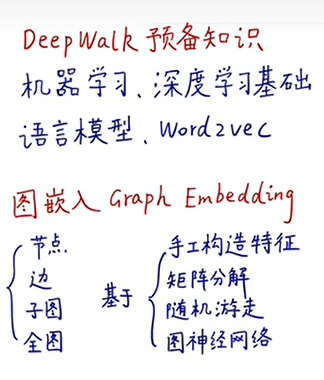 DeepWalk 预备知识
机器学习、深度学习基础
语言模型、Word2vec
图嵌入 Graph Embedding
节点
边
子图
全图
基于
手工构造特征
矩阵分解
随机游走
图神经网络